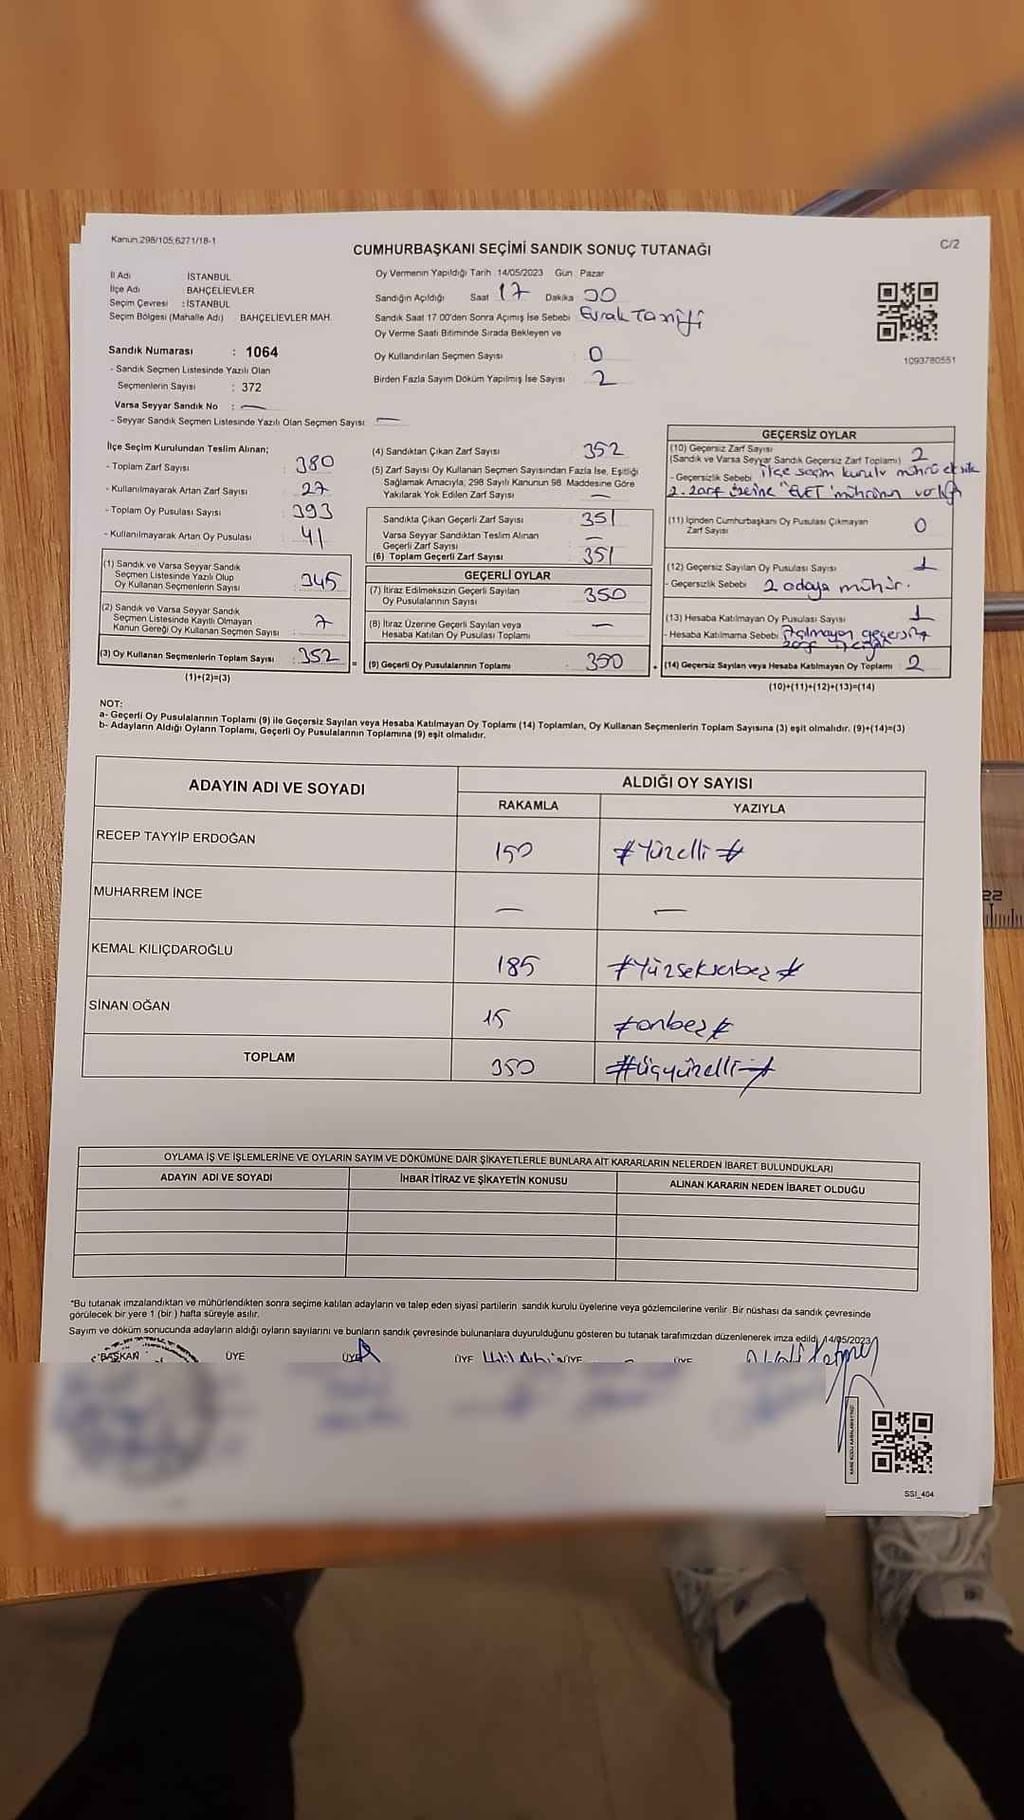 Kanun.298/105,6271/18-1
C/2
CUMHURBAŞKANI SEÇİMİ SANDIK SONUÇ TUTANAĞI
İl Adı İSTANBUL
İlçe Adı BAHÇELİEVLER
Seçim Çevresi : İSTANBUL
Seçim Bölgesi (Mahalle Adı) BAHÇELİEVLER MAH.
Sandık Numarası : 1064
- Sandık Seçmen Listesinde Yazılı Olan
Seçmenlerin Sayısı : 372
Varsa Seyyar Sandık No : —
- Seyyar Sandık Seçmen Listesinde Yazılı Olan Seçmen Sayısı —
Oy Vermenin Yapıldığı Tarih 14/05/2023 Gün Pazar
Sandığın Açıldığı Saat 17 Dakika 30
Sandık Saat 17.00'den Sonra Açımış İse Sebebi Evrak Tanzifi
Oy Verme Saati Bitiminde Sırada Bekleyen ve
Oy Kullandırılan Seçmen Sayısı 0
Birden Fazla Sayım Döküm Yapılmış İse Sayısı 2
1093780551
İlçe Seçim Kurulundan Teslim Alınan;
- Toplam Zarf Sayısı 380
- Kullanılmayarak Artan Zarf Sayısı 27
- Toplam Oy Pusulası Sayısı 393
- Kullanılmayarak Artan Oy Pusulası 41
(1) Sandık ve Varsa Seyyar Sandık
Seçmen Listesinde Yazılı Olup
Oy Kullanan Seçmenlerin Sayısı 345
(2) Sandık ve Varsa Seyyar Sandık
Seçmen Listesinde Kayıtlı Olmayan
Kanun Gereği Oy Kullanan Seçmen Sayısı 7
(3) Oy Kullanan Seçmenlerin Toplam Sayısı 352 =
(1)+(2)=(3)
(4) Sandıktan Çıkan Zarf Sayısı 352
(5) Zarf Sayısı Oy Kullanan Seçmen Sayısından Fazla İse, Eşitliği
Sağlamak Amacıyla, 298 Sayılı Kanunun 98. Maddesine Göre
Yakılarak Yok Edilen Zarf Sayısı —
Sandıkta Çıkan Geçerli Zarf Sayısı 351
Varsa Seyyar Sandıktan Teslim Alınan
Geçerli Zarf Sayısı —
(6) Toplam Geçerli Zarf Sayısı 351
GEÇERLİ OYLAR
(7) İtiraz Edilmeksizin Geçerli Sayılan
Oy Pusulalarının Sayısı 350
(8) İtiraz Üzerine Geçerli Sayılan veya
Hesaba Katılan Oy Pusulası Toplamı —
(9) Geçerli Oy Pusulalarının Toplamı 350
GEÇERSİZ OYLAR
(10) Geçersiz Zarf Sayısı 2
(Sandık ve Varsa Seyyar Sandık Geçersiz Zarf Toplamı)
- Geçersizlik Sebebi ilçe seçim kurulu mührü eksik
2. zarf üzerine "EVET" mührünün
(11) İçinden Cumhurbaşkanı Oy Pusulası Çıkmayan
Zarf Sayısı 0
(12) Geçersiz Sayılan Oy Pusulası Sayısı 1
- Geçersizlik Sebebi 2 adaya mühür.
(13) Hesaba Katılmayan Oy Pusulası Sayısı 1
- Hesaba Katılmama Sebebi Açılmayan geçersiz
(14) Geçersiz Sayılan veya Hesaba Katılmayan Oy Toplamı 2
(10)+(11)+(12)+(13)=(14)
NOT:
a- Geçerli Oy Pusulalarının Toplamı (9) ile Geçersiz Sayılan veya Hesaba Katılmayan Oy Toplamı (14) Toplamları, Oy Kullanan Seçmenlerin Toplam Sayısına (3) eşit olmalıdır. (9)+(14)=(3)
b- Adayların Aldığı Oyların Toplamı, Geçerli Oy Pusulalarının Toplamına (9) eşit olmalıdır.
ADAYIN ADI VE SOYADI ALDIĞI OY SAYISI
RAKAMLA YAZIYLA
RECEP TAYYİP ERDOĞAN 150 #Yüzelli#
MUHARREM İNCE — —
KEMAL KILIÇDAROĞLU 185 #Yüzseksenbeş#
SİNAN OĞAN 15 #onbeş#
TOPLAM 350 #üçyüzelli#
OYLAMA İŞ VE İŞLEMLERİNE VE OYLARIN SAYIM VE DÖKÜMÜNE DAİR ŞİKAYETLERLE BUNLARA AİT KARARLARIN NELERDEN İBARET BULUNDUKLARI
ADAYIN ADI VE SOYADI İHBAR İTİRAZ VE ŞİKAYETİN KONUSU ALINAN KARARIN NEDEN İBARET OLDUĞU
*Bu tutanak imzalandıktan ve mühürlendikten sonra seçime katılan adayların ve talep eden siyasi partilerin sandık kurulu üyelerine veya gözlemcilerine verilir. Bir nüshası da sandık çevresinde
görülecek bir yere 1 (bir) hafta süreyle asılır.
Sayım ve döküm sonucunda adayların aldığı oyların sayılarını ve bunların sandık çevresinde bulunanlara duyurulduğunu gösteren bu tutanak tarafımızdan düzenlenerek imza edildi. 14/05/2023
BAŞKAN ÜYE ÜYE ÜYE ÜYE ÜYE
SSI_404
22